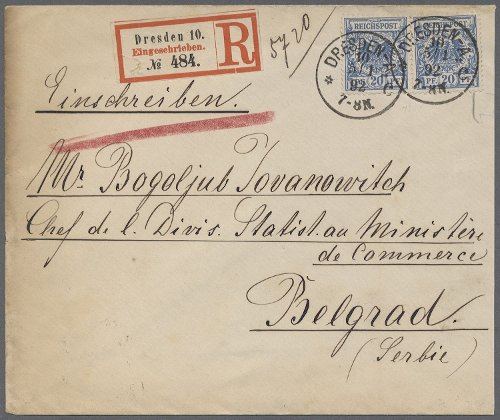 Dresden 10.
Eingeschrieben.
№ 484.
R
5720
REICHSPOST
REICHSPOST
20 PF 20
PF 20 PF
* DRESDEN
92
7-8N.
DRESDEN
92
7-8N.
Einschreiben.
Mr Bogoljub Jovanowitch
Chef de l. Divis. Statist. au Ministère
de Commerce
Belgrad.
(Serbie)